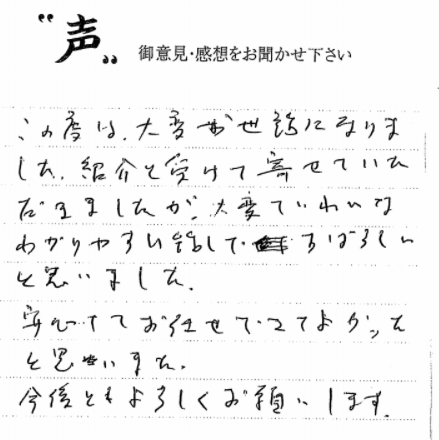 "声"
御意見・感想をお聞かせ下さい
この度は、大変お世話になりま
した。紹介を受けて寄せていた
だきましたが、大変ていねいな
わかりやすい話しで すばらしい
と思いました。
安心してお任せできてよかった
と思いました。
今後ともよろしくお願いします。